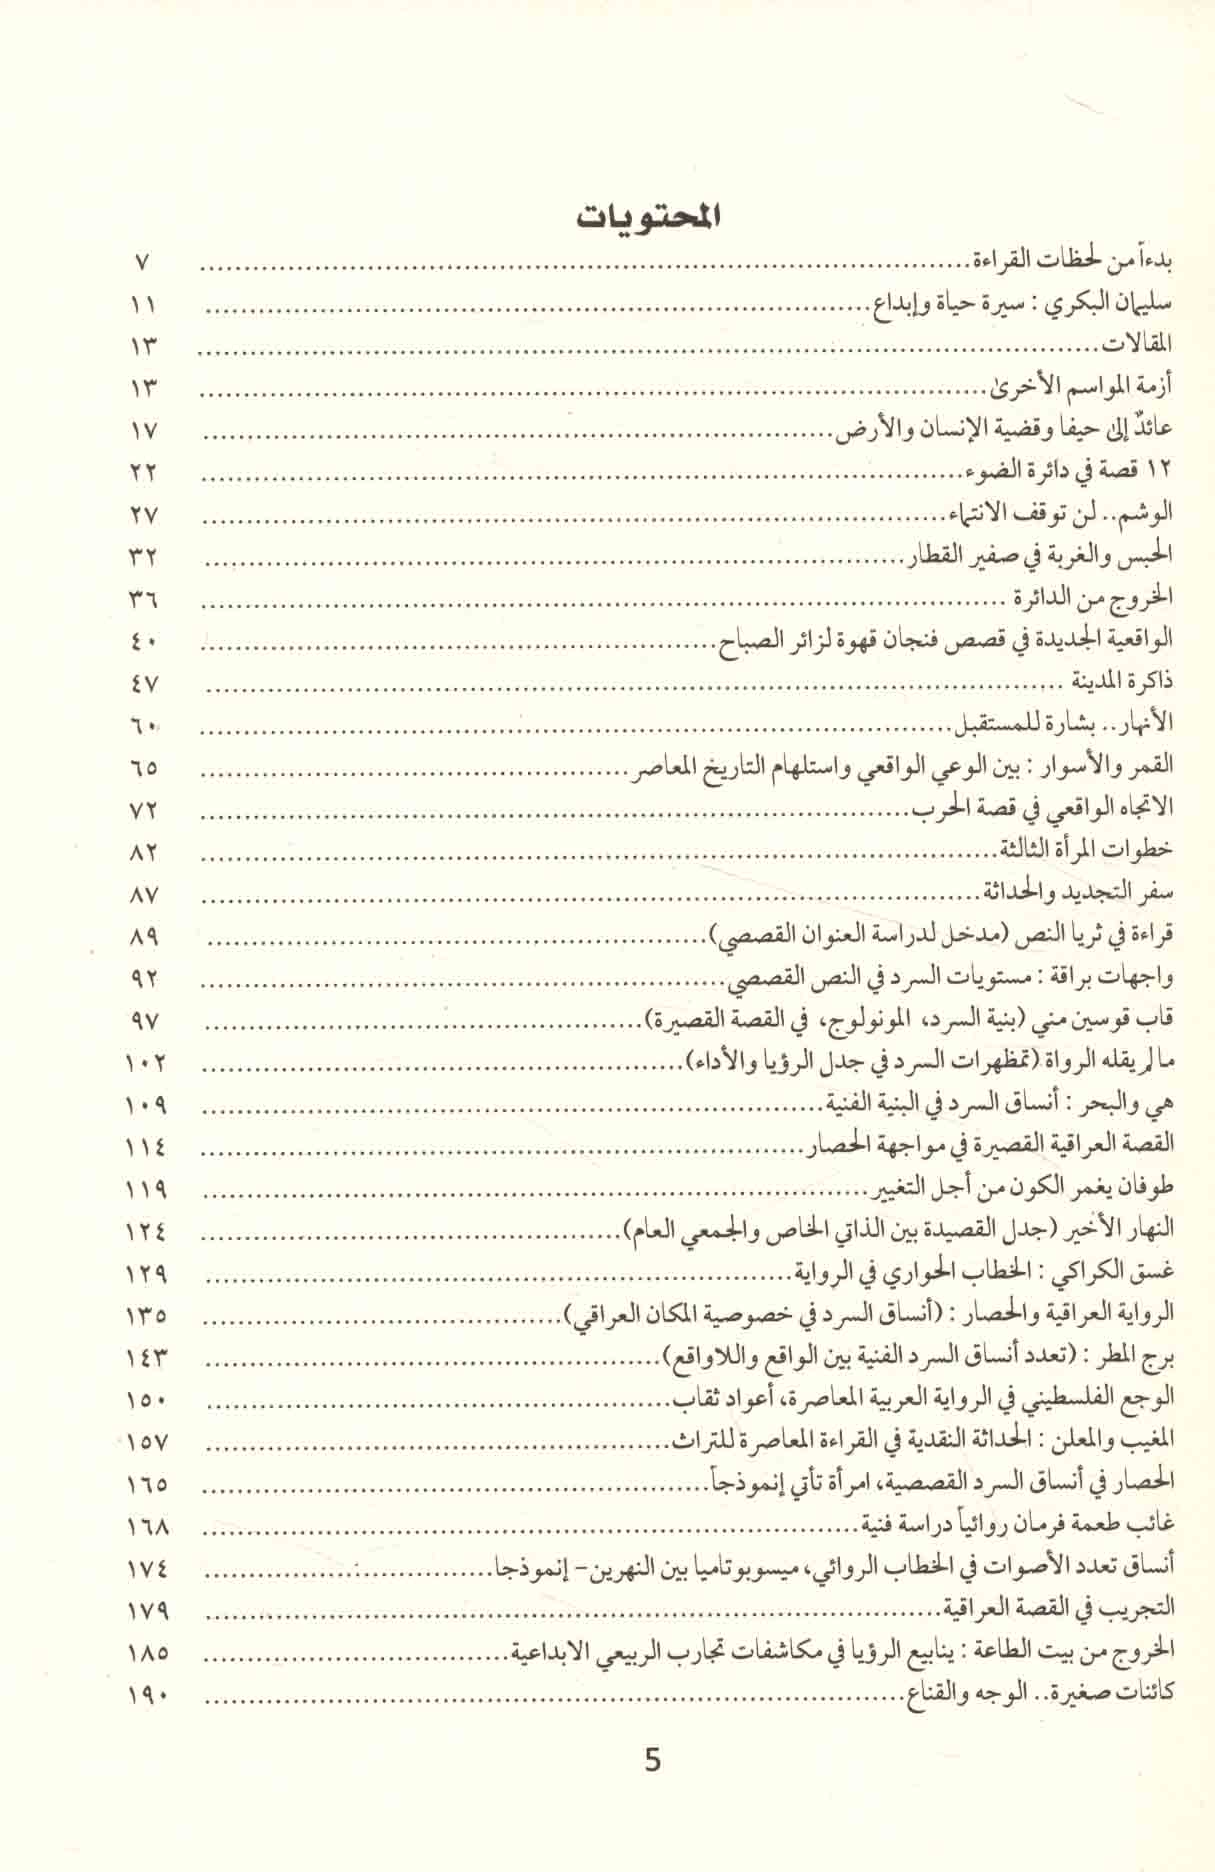 المحتويات
بدءاً من لحظات القراءة........................................ ٧
سليمان البكري : سيرة حياة وإبداع........................................ ١١
المقالات........................................ ١٣
أزمة المواسم الأخرى........................................ ١٣
عائدٌ إلى حيفا وقضية الإنسان والأرض........................................ ١٧
١٢ قصة في دائرة الضوء........................................ ٢٢
الوشم.. لن توقف الانتماء........................................ ٢٧
الحبس والغربة في صفير القطار........................................ ٣٢
الخروج من الدائرة ........................................ ٣٦
الواقعية الجديدة في قصص فنجان قهوة لزائر الصباح........................................ ٤٠
ذاكرة المدينة ........................................ ٤٧
الأنهار.. بشارة للمستقبل........................................ ٦٠
القمر والأسوار : بين الوعي الواقعي واستلهام التاريخ المعاصر........................................ ٦٥
الاتجاه الواقعي في قصة الحرب........................................ ٧٢
خطوات المرأة الثالثة........................................ ٨٢
سفر التجديد والحداثة........................................ ٨٧
قراءة في ثريا النص (مدخل لدراسة العنوان القصصي)........................................ ٨٩
واجهات براقة : مستويات السرد في النص القصصي........................................ ٩٢
قاب قوسين مني (بنية السرد، المونولوج، في القصة القصيرة)........................................ ٩٧
ما لم يقله الرواة (تمظهرات السرد في جدل الرؤيا والأداء)........................................ ١٠٢
هي والبحر : أنساق السرد في البنية الفنية........................................ ١٠٩
القصة العراقية القصيرة في مواجهة الحصار........................................ ١١٤
طوفان يغمر الكون من أجل التغيير........................................ ١١٩
النهار الأخير (جدل القصيدة بين الذاتي الخاص والجمعي العام)........................................ ١٢٤
غسق الكراكي : الخطاب الحواري في الرواية........................................ ١٢٩
الرواية العراقية والحصار : (أنساق السرد في خصوصية المكان العراقي)........................................ ١٣٥
برج المطر : (تعدد أنساق السرد الفنية بين الواقع واللاواقع)........................................ ١٤٣
الوجع الفلسطيني في الرواية العربية المعاصرة، أعواد ثقاب........................................ ١٥٠
المغيب والمعلن : الحداثة النقدية في القراءة المعاصرة للتراث........................................ ١٥٧
الحصار في أنساق السرد القصصية، امرأة تأتي إنموذجاً........................................ ١٦٥
غائب طعمة فرمان روائياً دراسة فنية........................................ ١٦٨
أنساق تعدد الأصوات في الخطاب الروائي، ميسوبوتاميا بين النهرين- إنموذجا........................................ ١٧٤
التجريب في القصة العراقية........................................ ١٧٩
الخروج من بيت الطاعة : ينابيع الرؤيا في مكاشفات تجارب الربيعي الابداعية........................................ ١٨٥
كائنات صغيرة.. الوجه والقناع........................................ ١٩٠
5